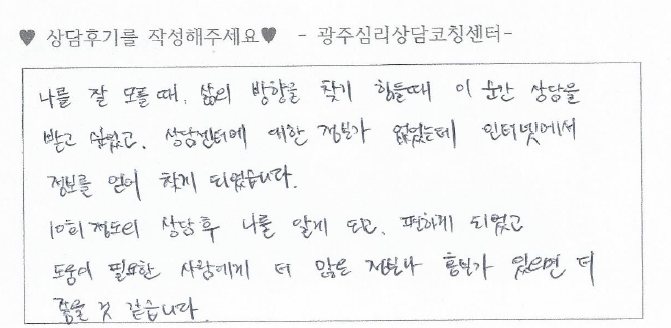 ♥ 상담후기를 작성해주세요♥ - 광주심리상담코칭센터-
나를 잘 모를 때, 삶의 방향을 찾기 힘들때 이 순간 상담을
받고 싶었고, 상담센터에 대한 정보가 없었는데 인터넷에서
정보를 얻어 찾게 되었습니다.
10회 정도의 상담 후 나를 알게 되고, 편하게 되었고
도움이 필요한 사람에게 더 많은 정보나 홍보가 있으면 더
좋을 것 같습니다.